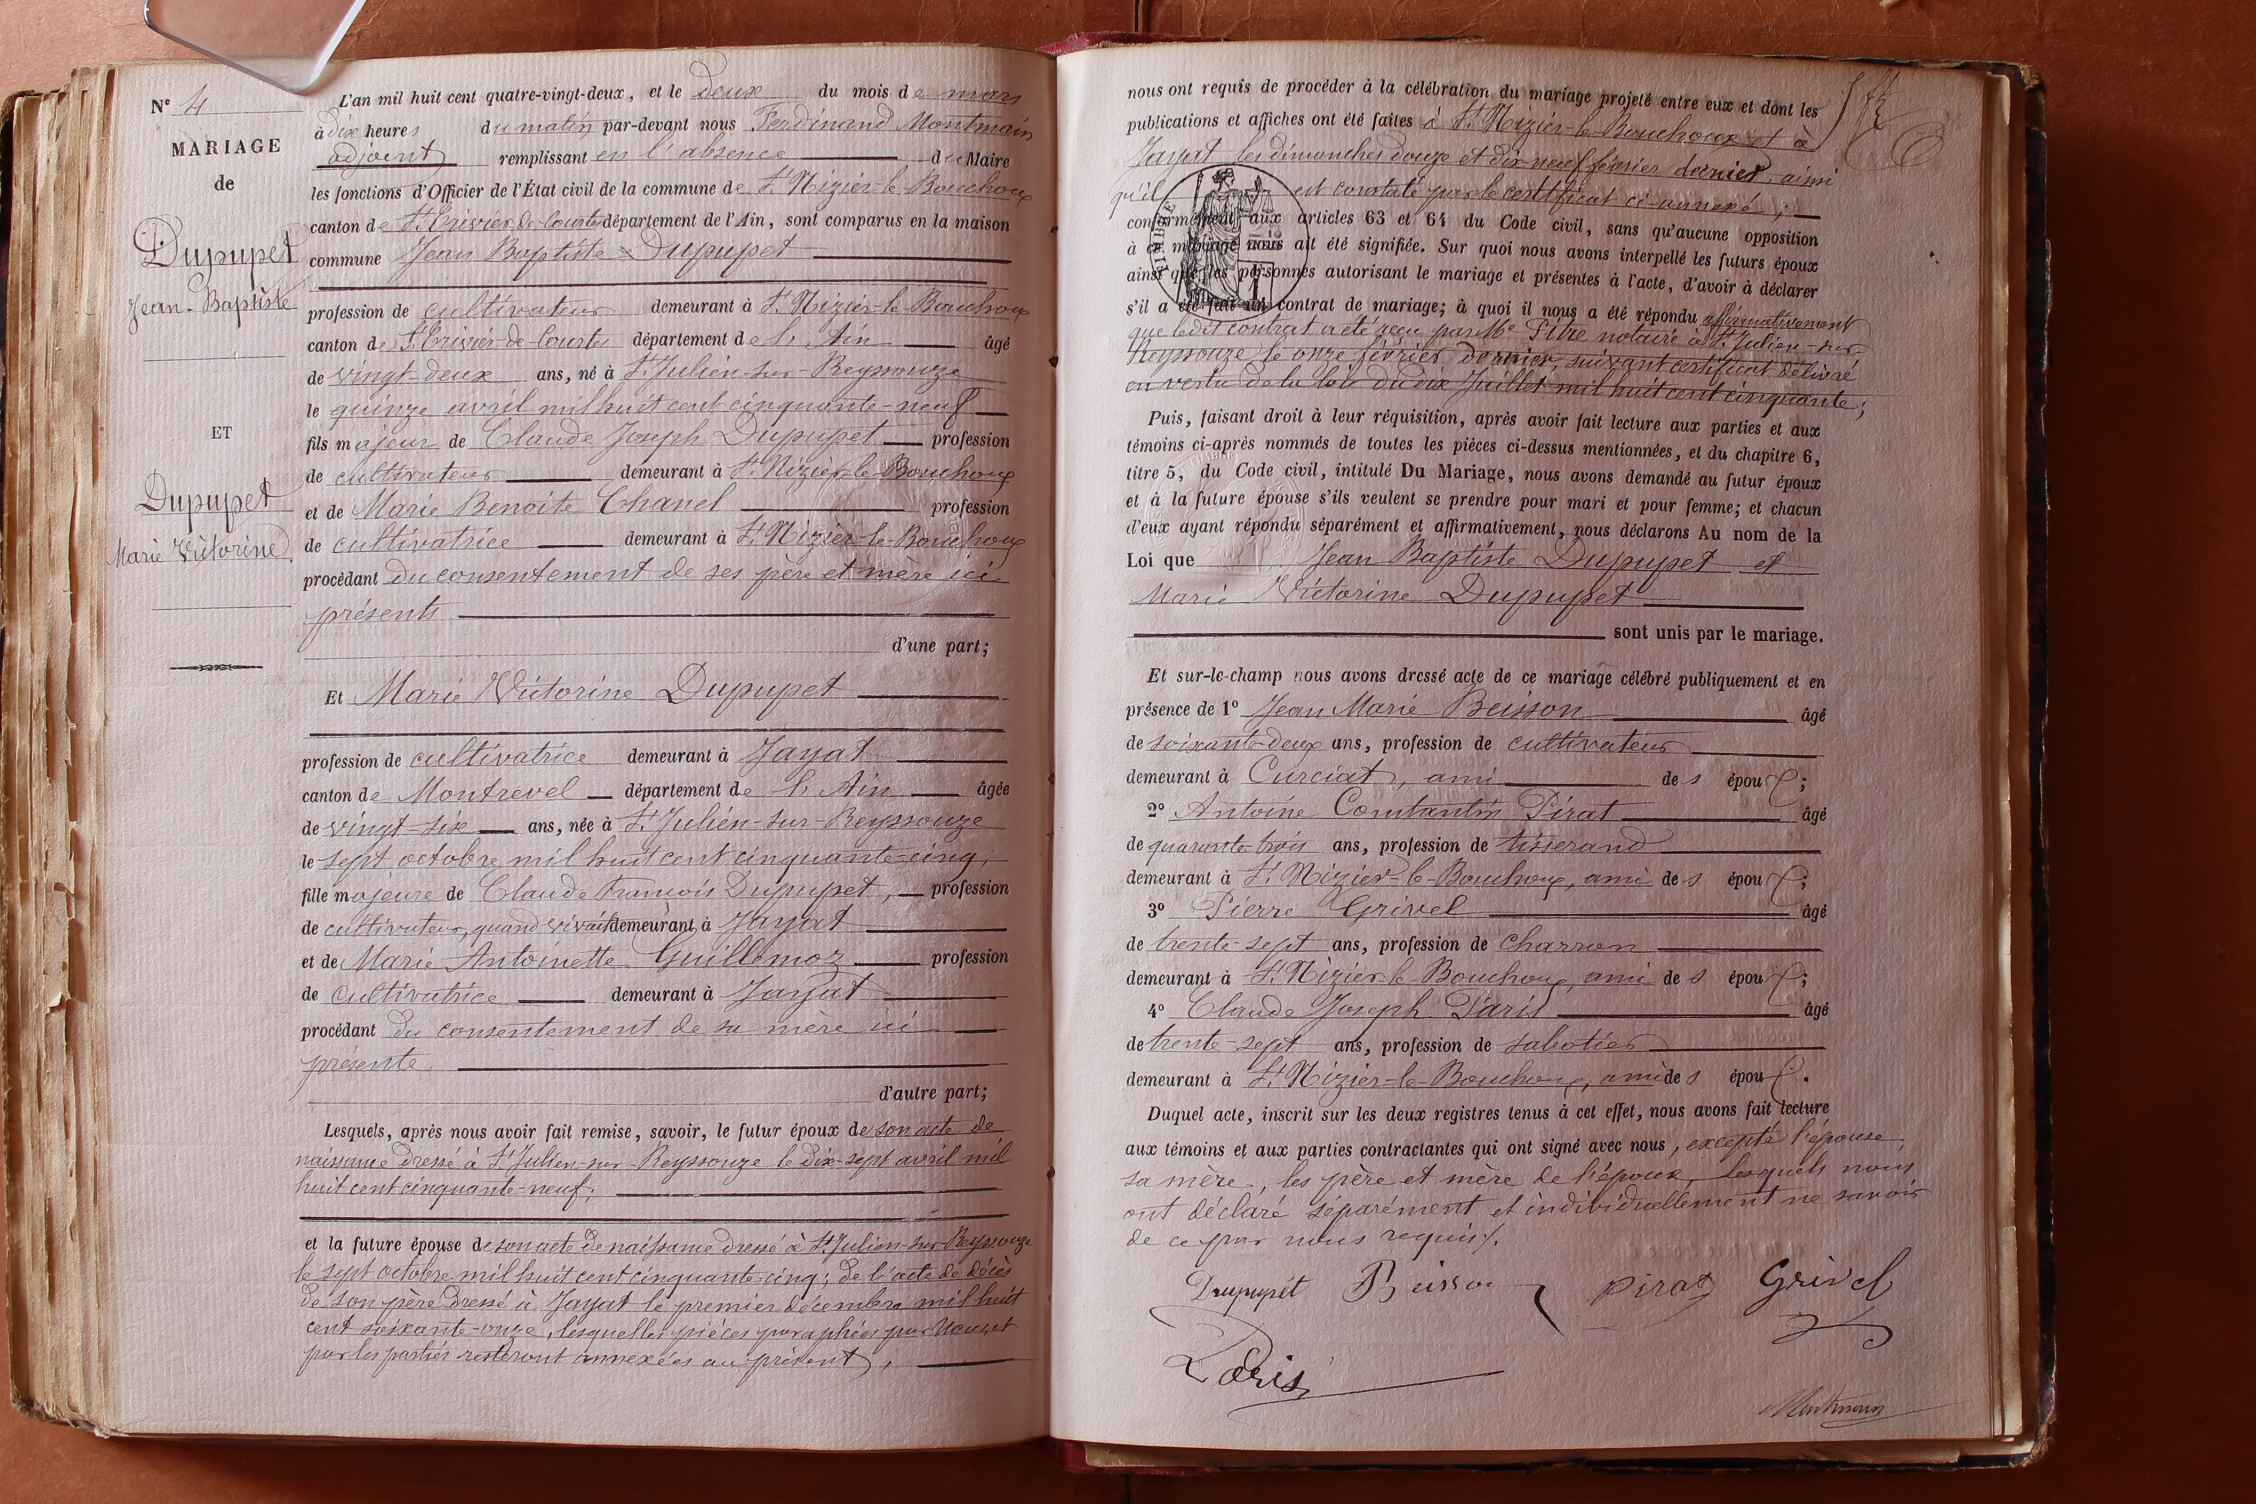 N° 4
MARIAGE
de
Dupupet
Jean-Baptiste
ET
Dupupet
Marie Victorine
L'an mil huit cent quatre-vingt-deux, et le deux du mois de mars
à dix heures du matin par-devant nous Ferdinand Montmain
adjoint remplissant en l'absence du Maire
les fonctions d'Officier de l'État civil de la commune de St Nizier-le-Bouchoux
canton de St Trivier-de-Courtes département de l'Ain, sont comparus en la maison
commune Jean Baptiste Dupupet
profession de cultivateur demeurant à St Nizier-le-Bouchoux
canton de St Trivier-de-Courtes département de l'Ain âgé
de vingt-deux ans, né à St Julien-sur-Reyssouze
le quinze avril mil huit cent cinquante-neuf
fils majeur de Claude Joseph Dupupet profession
de cultivateur demeurant à St Nizier-le-Bouchoux
et de Marie Benoite Chanel profession
de cultivatrice demeurant à St Nizier-le-Bouchoux
procédant du consentement de ses père et mère ici
présents
d'une part;
Et Marie Victorine Dupupet
profession de cultivatrice demeurant à Jayat
canton de Montrevel département de l'Ain âgée
de vingt-six ans, née à St Julien-sur-Reyssouze
le sept octobre mil huit cent cinquante-cinq,
fille majeure de Claude François Dupupet, profession
de cultivateur, quand vivait demeurant à Jayat
et de Marie Antoinette Guillemoz profession
de cultivatrice demeurant à Jayat
procédant du consentement de sa mère ici
présente.
d'autre part;
Lesquels, après nous avoir fait remise, savoir, le futur époux de son acte de
naissance dressé à St Julien-sur-Reyssouze le dix-sept avril mil
huit cent cinquante-neuf;
et la future épouse de son acte de naissance dressé à St Julien-sur-Reyssouze
le sept octobre mil huit cent cinquante-cinq; de l'acte de décès
de son père dressé à Jayat le premier décembre mil huit
cent soixante-onze, lesquelles pièces paraphées par nous et
par les parties resteront annexées au présent,
nous ont requis de procéder à la célébration du mariage projeté entre eux et dont les
publications et affiches ont été faites à St Nizier-le-Bouchoux et à
Jayat les dimanches douze et dix-neuf février dernier, ainsi
qu'il est constaté par le certificat ci-annexé;
conformément aux articles 63 et 64 du Code civil, sans qu'aucune opposition
à ce mariage nous ait été signifiée. Sur quoi nous avons interpellé les futurs époux
ainsi que les personnes autorisant le mariage et présentes à l'acte, d'avoir à déclarer
s'il a été fait un contrat de mariage; à quoi il nous a été répondu affirmativement
que ledit contrat a été reçu par Me notaire à St Julien-sur-
Reyssouze, le onze février dernier, suivant certificat délivré
en vertu de la loi du dix Juillet mil huit cent cinquante;
Puis, faisant droit à leur réquisition, après avoir fait lecture aux parties et aux
témoins ci-après nommés de toutes les pièces ci-dessus mentionnées, et du chapitre 6,
titre 5, du Code civil, intitulé Du Mariage, nous avons demandé au futur époux
et à la future épouse s'ils veulent se prendre pour mari et pour femme; et chacun
d'eux ayant répondu séparément et affirmativement, nous déclarons Au nom de la
Loi que Jean Baptiste Dupupet et
Marie Victorine Dupupet
sont unis par le mariage.
Et sur-le-champ nous avons dressé acte de ce mariage célébré publiquement et en
présence de 1° Jean Marie Beisson âgé
de soixante-deux ans, profession de cultivateur
demeurant à Curciat, ami des époux;
2° Antoine Constantin Pirat âgé
de quarante-trois ans, profession de tisserand
demeurant à St Nizier-le-Bouchoux, ami des époux;
3° Pierre Grivel âgé
de trente-sept ans, profession de charron
demeurant à St Nizier-le-Bouchoux, ami des époux;
4° Claude Joseph Paris âgé
de trente-sept ans, profession de sabotier
demeurant à St Nizier-le-Bouchoux, ami des époux.
Duquel acte, inscrit sur les deux registres tenus à cet effet, nous avons fait lecture
aux témoins et aux parties contractantes qui ont signé avec nous, excepté l'épouse,
sa mère, les père et mère de l'époux, lesquels nous
ont déclaré séparément et individuellement ne savoir
de ce par nous requis.
Dupupet Beisson Pirat Grivel
Paris
Montmain